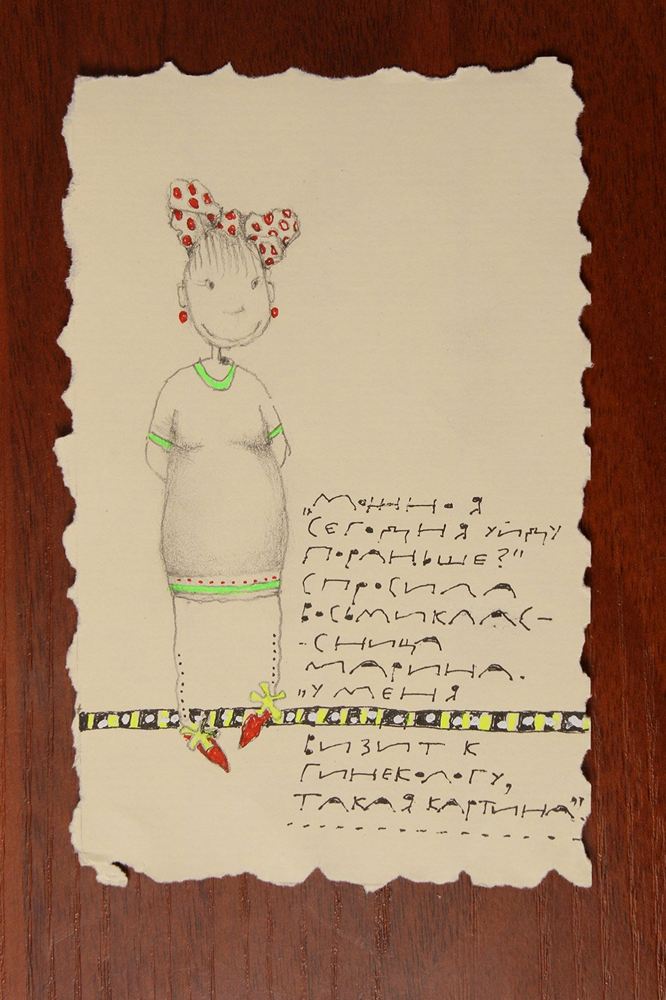 „МОЖНО Я
СЕГОДНЯ УЙДУ
ПОРАНЬШЕ?"
СПРОСИЛА
ВОСЬМИКЛАС-
-СНИЦА
МАРИНА.
"У МЕНЯ
ВИЗИТ К
ГИНЕКОЛОГУ,
ТАКАЯ КАРТИНА".